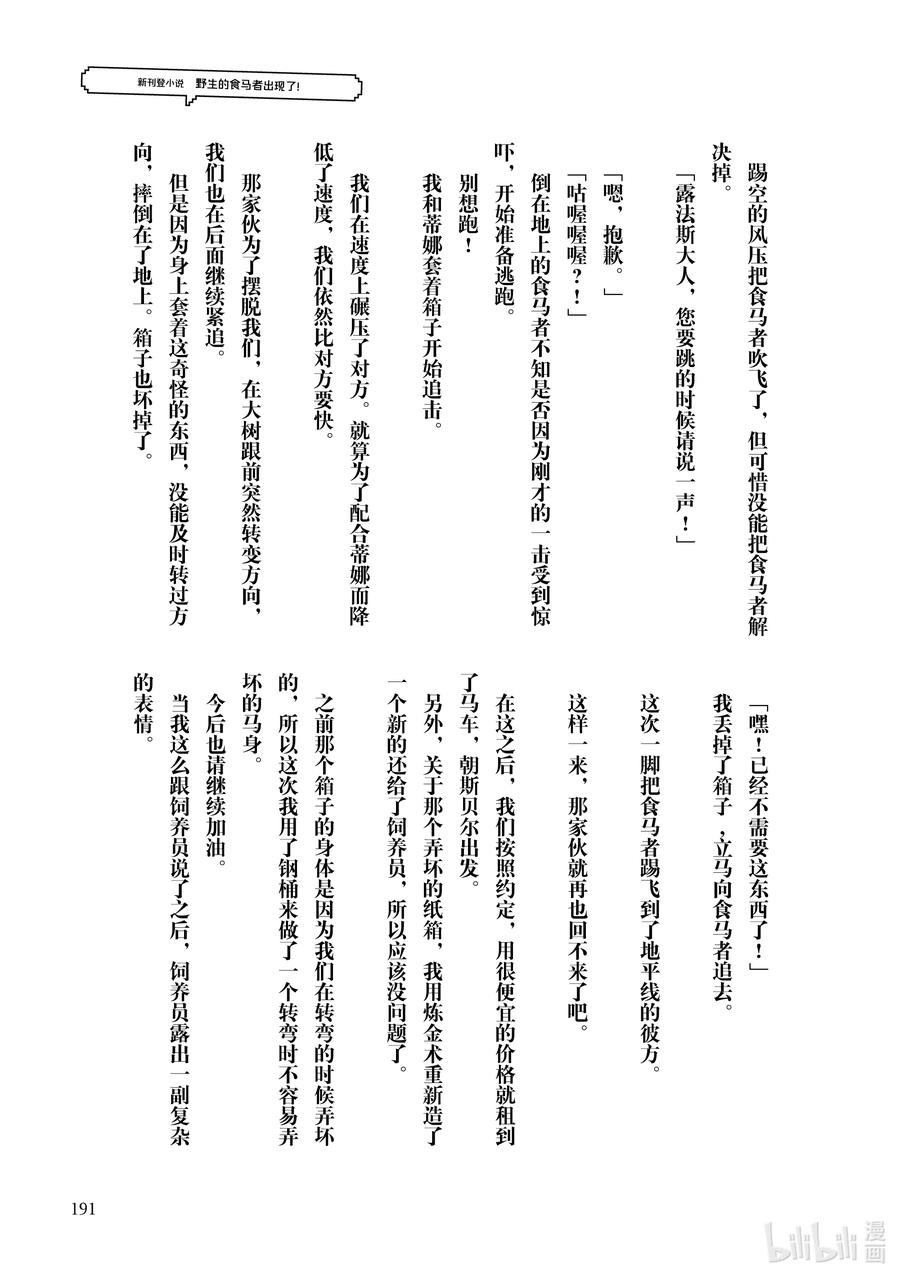 新刊登小说 野生的食马者出现了!
踢空的风压把食马者吹飞了，但可惜没能把食马者解
决掉。
「露法斯大人，您要跳的时候请说一声！」
「嗯，抱歉。」
「咕喔喔喔？！」
倒在地上的食马者不知是否因为刚才的一击受到惊
吓，开始准备逃跑。
别想跑！
我和蒂娜套着箱子开始追击。
我们在速度上碾压了对方。就算为了配合蒂娜而降
低了速度，我们依然比对方要快。
那家伙为了摆脱我们，在大树跟前突然转变方向，
我们也在后面继续紧追。
但是因为身上套着这奇怪的东西，没能及时转过方
向，摔倒在了地上。箱子也坏掉了。
「嘿！已经不需要这东西了！」
我丢掉了箱子；立马向食马者追去。
这次一脚把食马者踢飞到了地平线的彼方。
这样一来，那家伙就再也回不来了吧。
在这之后，我们按照约定，用很便宜的价格就租到
了马车，朝斯贝尔出发。
另外，关于那个弄坏的纸箱，我用炼金术重新造了
一个新的还给了饲养员，所以应该没问题了。
之前那个箱子的身体是因为我们在转弯的时候弄坏
的，所以这次我用了钢桶来做了一个转弯时不容易弄
坏的马身。
今后也请继续加油。
当我这么跟饲养员说了之后，饲养员露出一副复杂
的表情。
191
bilibili 漫画